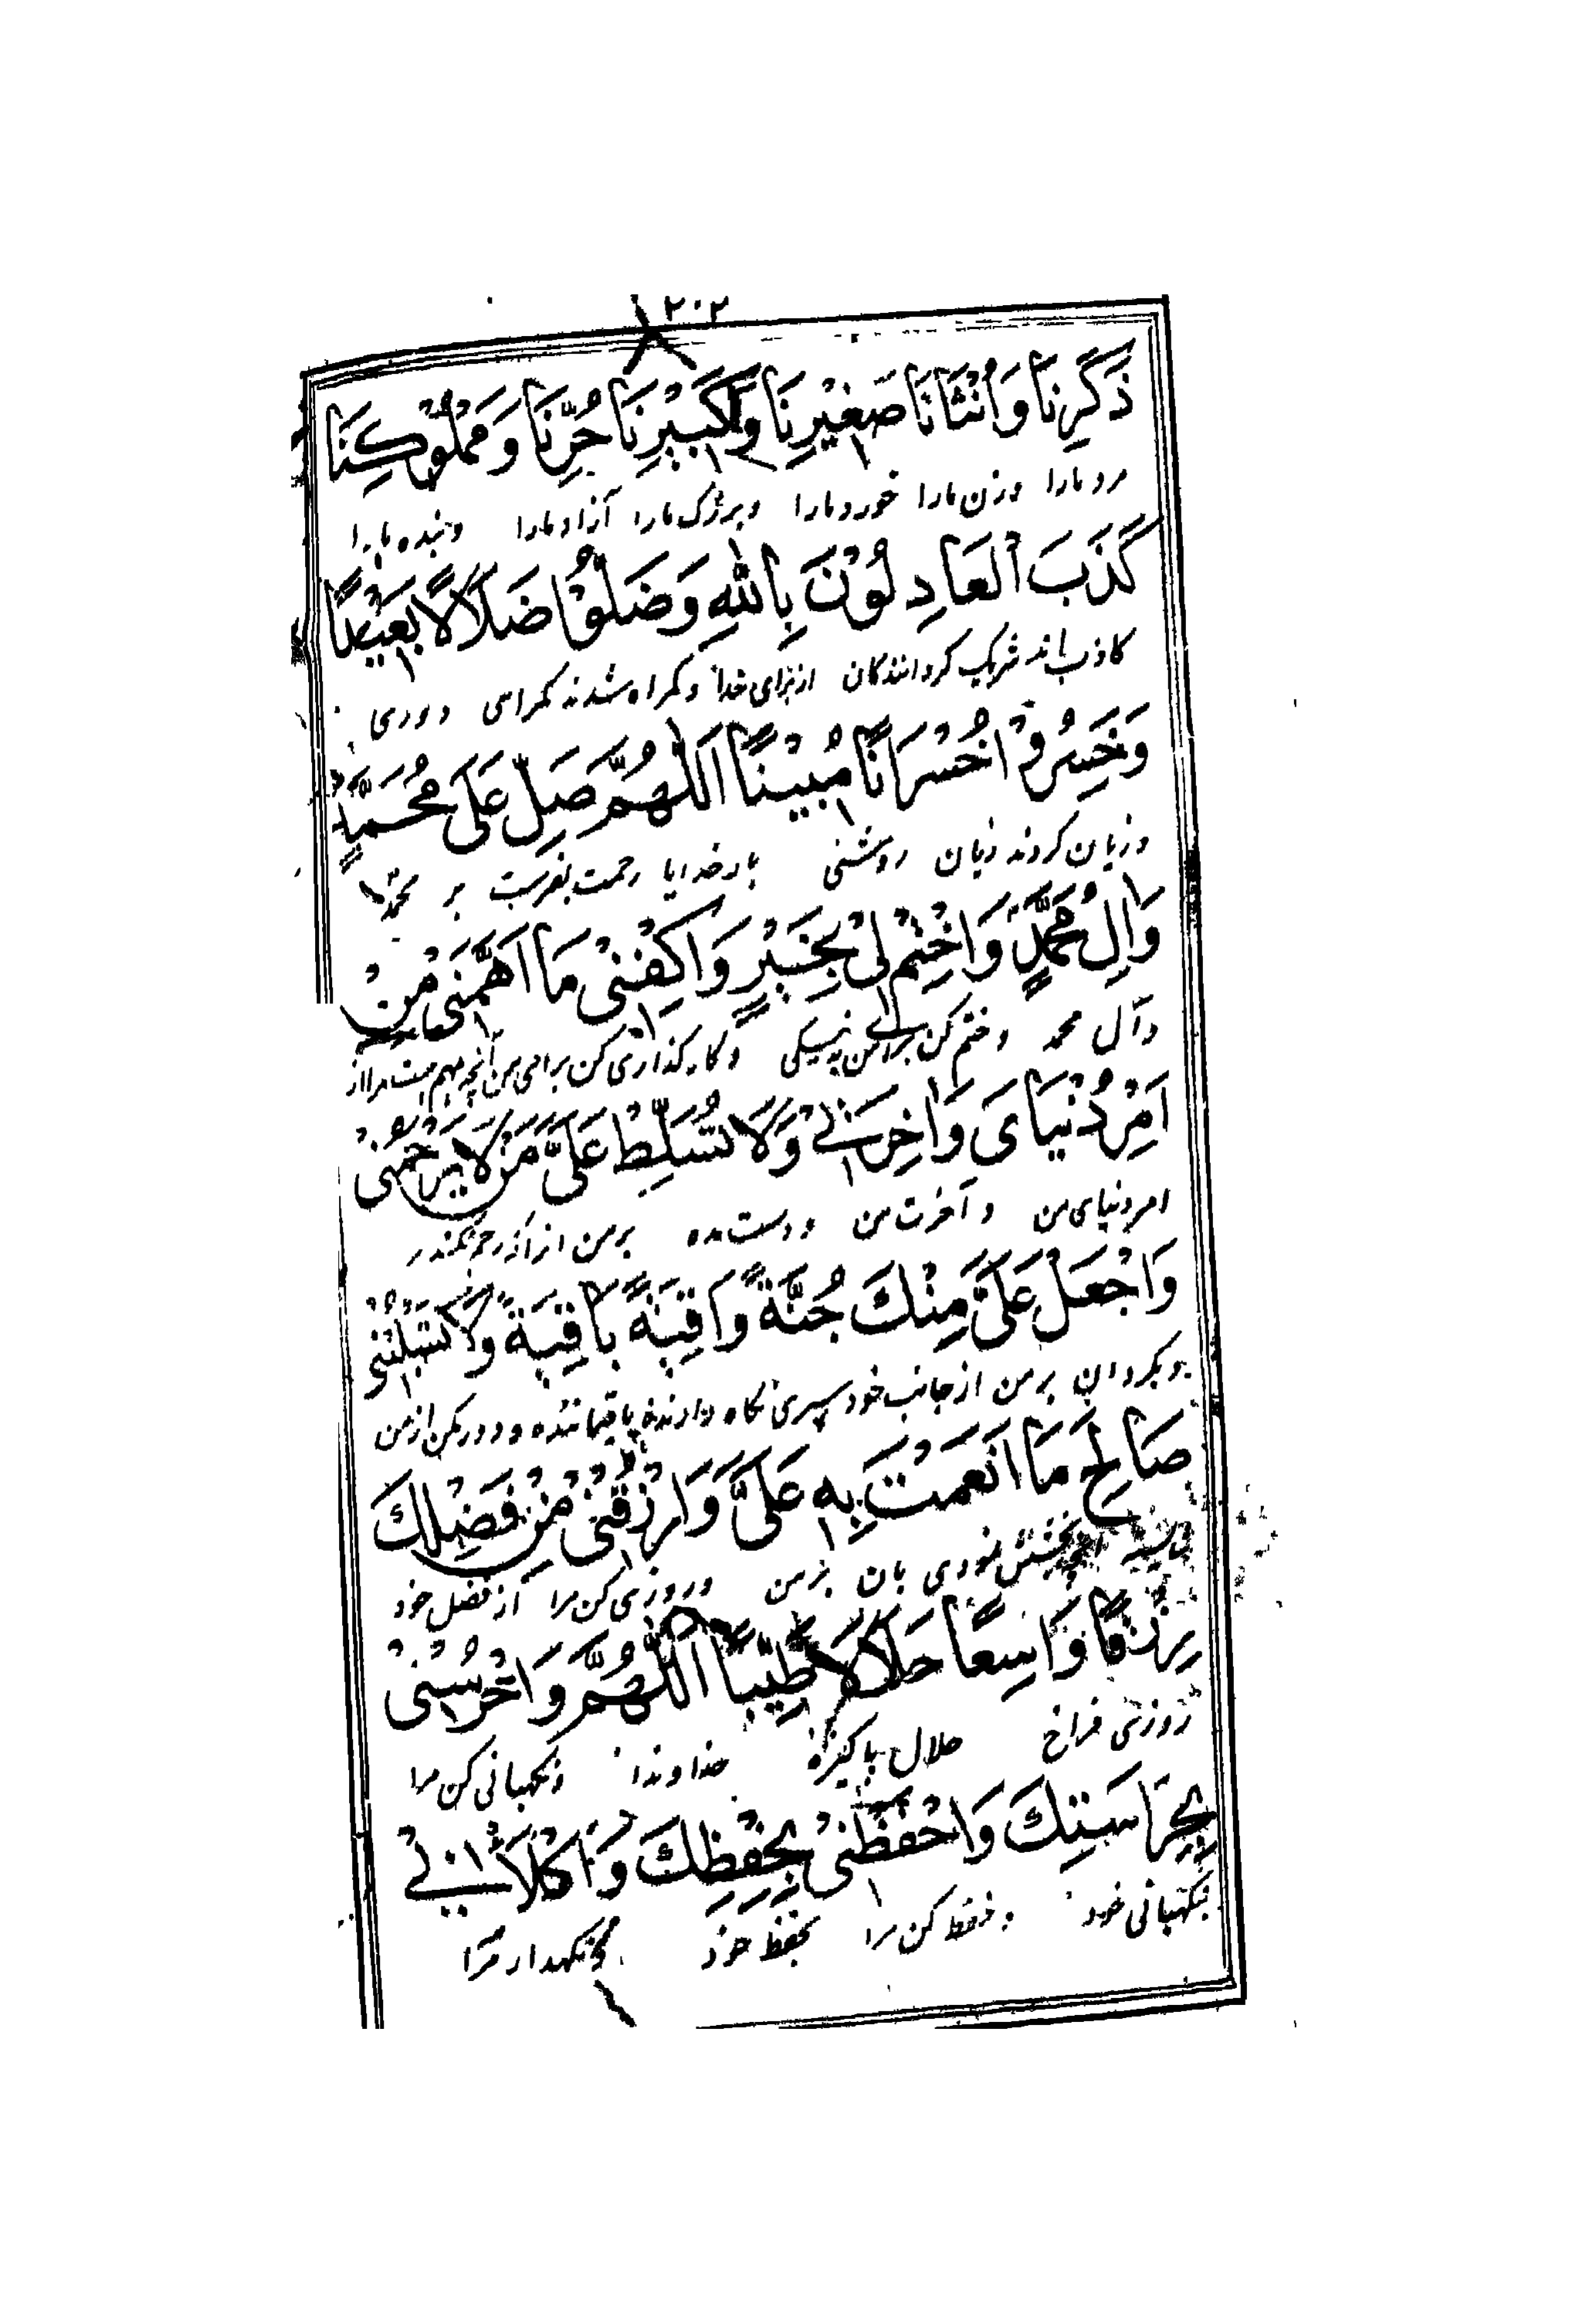 ٢٠٢
ذَكَرِنَا وَاُنْثَانَا صَغِيْرِنَا وَكَبِيْرِنَا حُرِّنَا وَمَمْلُوْكِنَا
مرد مارا وزن مارا خورد مارا وبزرک مارا آزاد مارا وبنده مارا
كَذَبَ الْعَادِلُوْنَ بِاللّٰهِ وَضَلُّوْا ضَلَالًا بَعِيْدًا
کاذب اند شریک کردانندکان ازبرای خدا وکمراه شدند کمراهی دوری
وَخَسِرُوْا خُسْرَانًا مُبِيْنًا اَللّٰهُمَّ صَلِّ عَلٰى مُحَمَّدٍ
وزیان کردند زیان روشنی بارخدایا رحمت بفرست بر محمد
وَاٰلِ مُحَمَّدٍ وَاخْتِمْ لِىْ بِخَيْرٍ وَاكْفِنِىْ مَا اَهَمَّنِىْ مِنْ
وآل محمد وختم کن برای من به نیکی وکارکذاری کن برای من آنچه مهم است مرا از
اَمْرِ دُنْيَاىَ وَاٰخِرَتِىْ وَلَا تُسَلِّطْ عَلَىَّ مَنْ لَا يَرْحَمُنِىْ
امر دنیای من وآخرت من ودست مده برمن ازانکه رحم نکند
وَاجْعَلْ عَلَىَّ مِنْكَ جُنَّةً وَاقِيَةً بَاقِيَةً وَلَا تَسْلُبْنِىْ
وبکردان برمن ازجانب خود سپری نکاه دارنده باقیمانده ودور مکن ازمن
صَالِحَ مَا اَنْعَمْتَ بِهٖ عَلَىَّ وَارْزُقْنِىْ مِنْ فَضْلِكَ
بخشش نمودی بان برمن وروزی کن مرا از فضل خود
رِزْقًا وَاسِعًا حَلَالًا طَيِّبًا اَللّٰهُمَّ وَاحْرُسْنِىْ
روزی فراخ حلال پاکیزه خداوندا ونکهبانی کن مرا
بِحِرَاسَتِكَ وَاحْفَظْنِىْ بِحِفْظِكَ وَاكْلَأْنِىْ
بنکهبانی خود وحفظ کن مرا بحفظ خود ونکهدار مرا